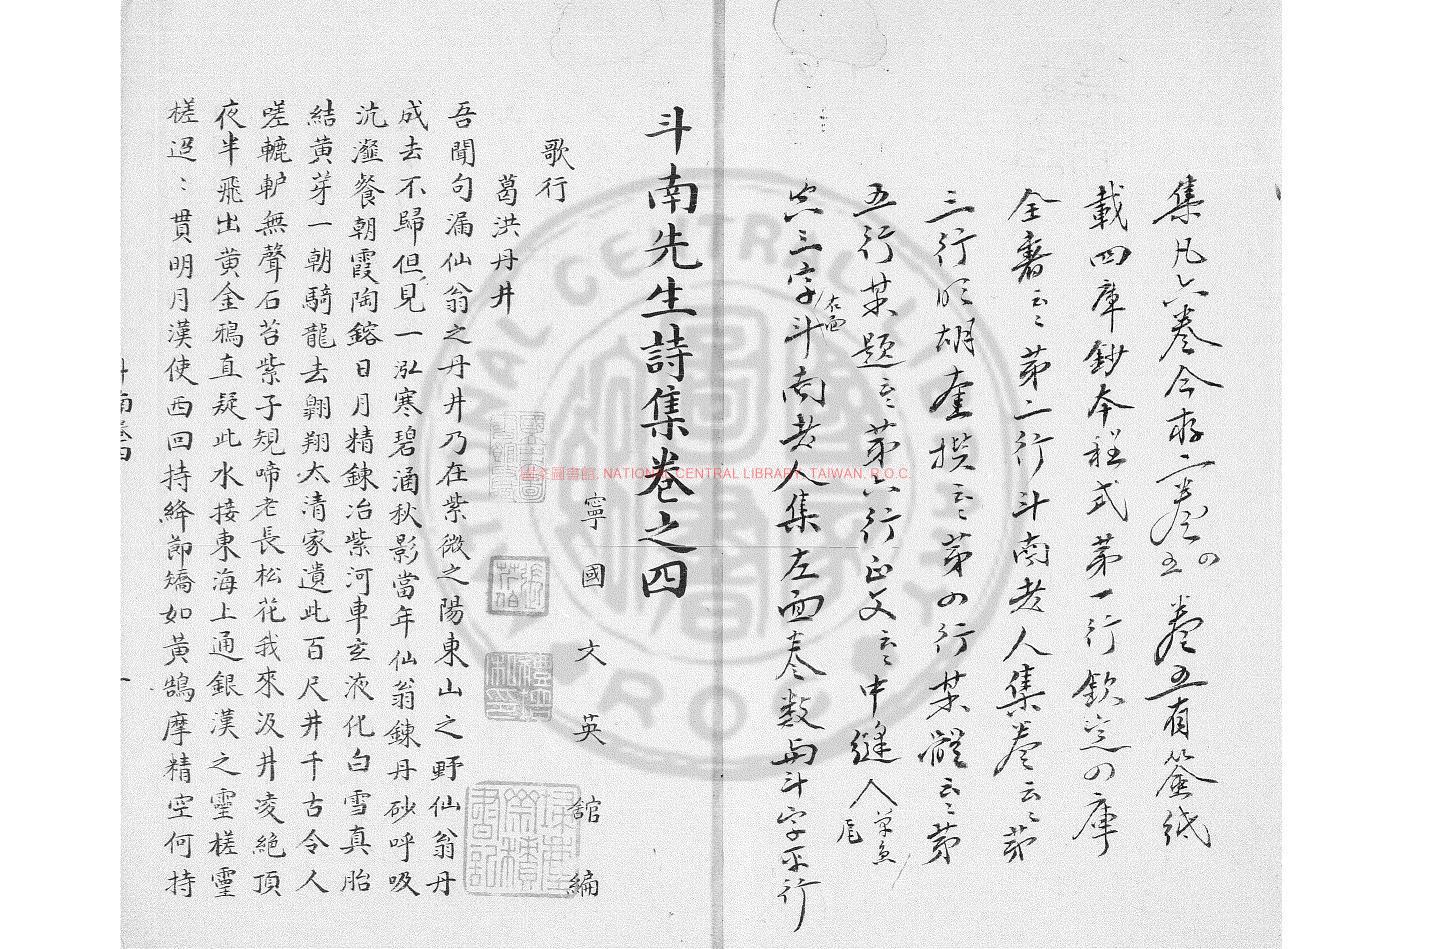 集凡六卷今存二卷四五卷五有簽紙
載四庫鈔本程式第一行欽定四庫
全書云云第二行斗南老人集卷云云第
三行明胡奎撰云云第四行某體云云第
五行某題云云第六行正文云云中縫入單魚尾
右面
六三字斗南老人集左面卷数與斗字平行
斗南先生詩集卷之四
寧國文英館編
歌行
葛洪丹井
吾聞句漏仙翁之丹井乃在紫微之陽東山之野仙翁丹
成去不歸但見一泓寒碧涵秋影當年仙翁鍊丹砂呼吸
沆瀣餐朝霞陶鎔日月精鍊冶紫河車玄液化白雪真胎
結黄芽一朝騎龍去翺翔太清家遺此百尺井千古令人
嗟轆轤無聲石苔紫子規啼老長松花我來汲井凌絶頂
夜半飛出黄金鴉直疑此水接東海上通銀漢之霻槎霻
槎迢：貫明月漢使西回持絳節矯如黃鵠摩精空何持
國家圖書館, NATIONAL CENTRAL LIBRARY, TAIWAN, R.O.C.
NATIONAL CENTRAL LIBRARY
ROC